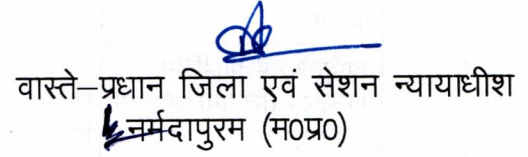 वास्ते–प्रधान जिला एवं सेशन न्यायाधीश
नर्मदापुरम (म0प्र0)